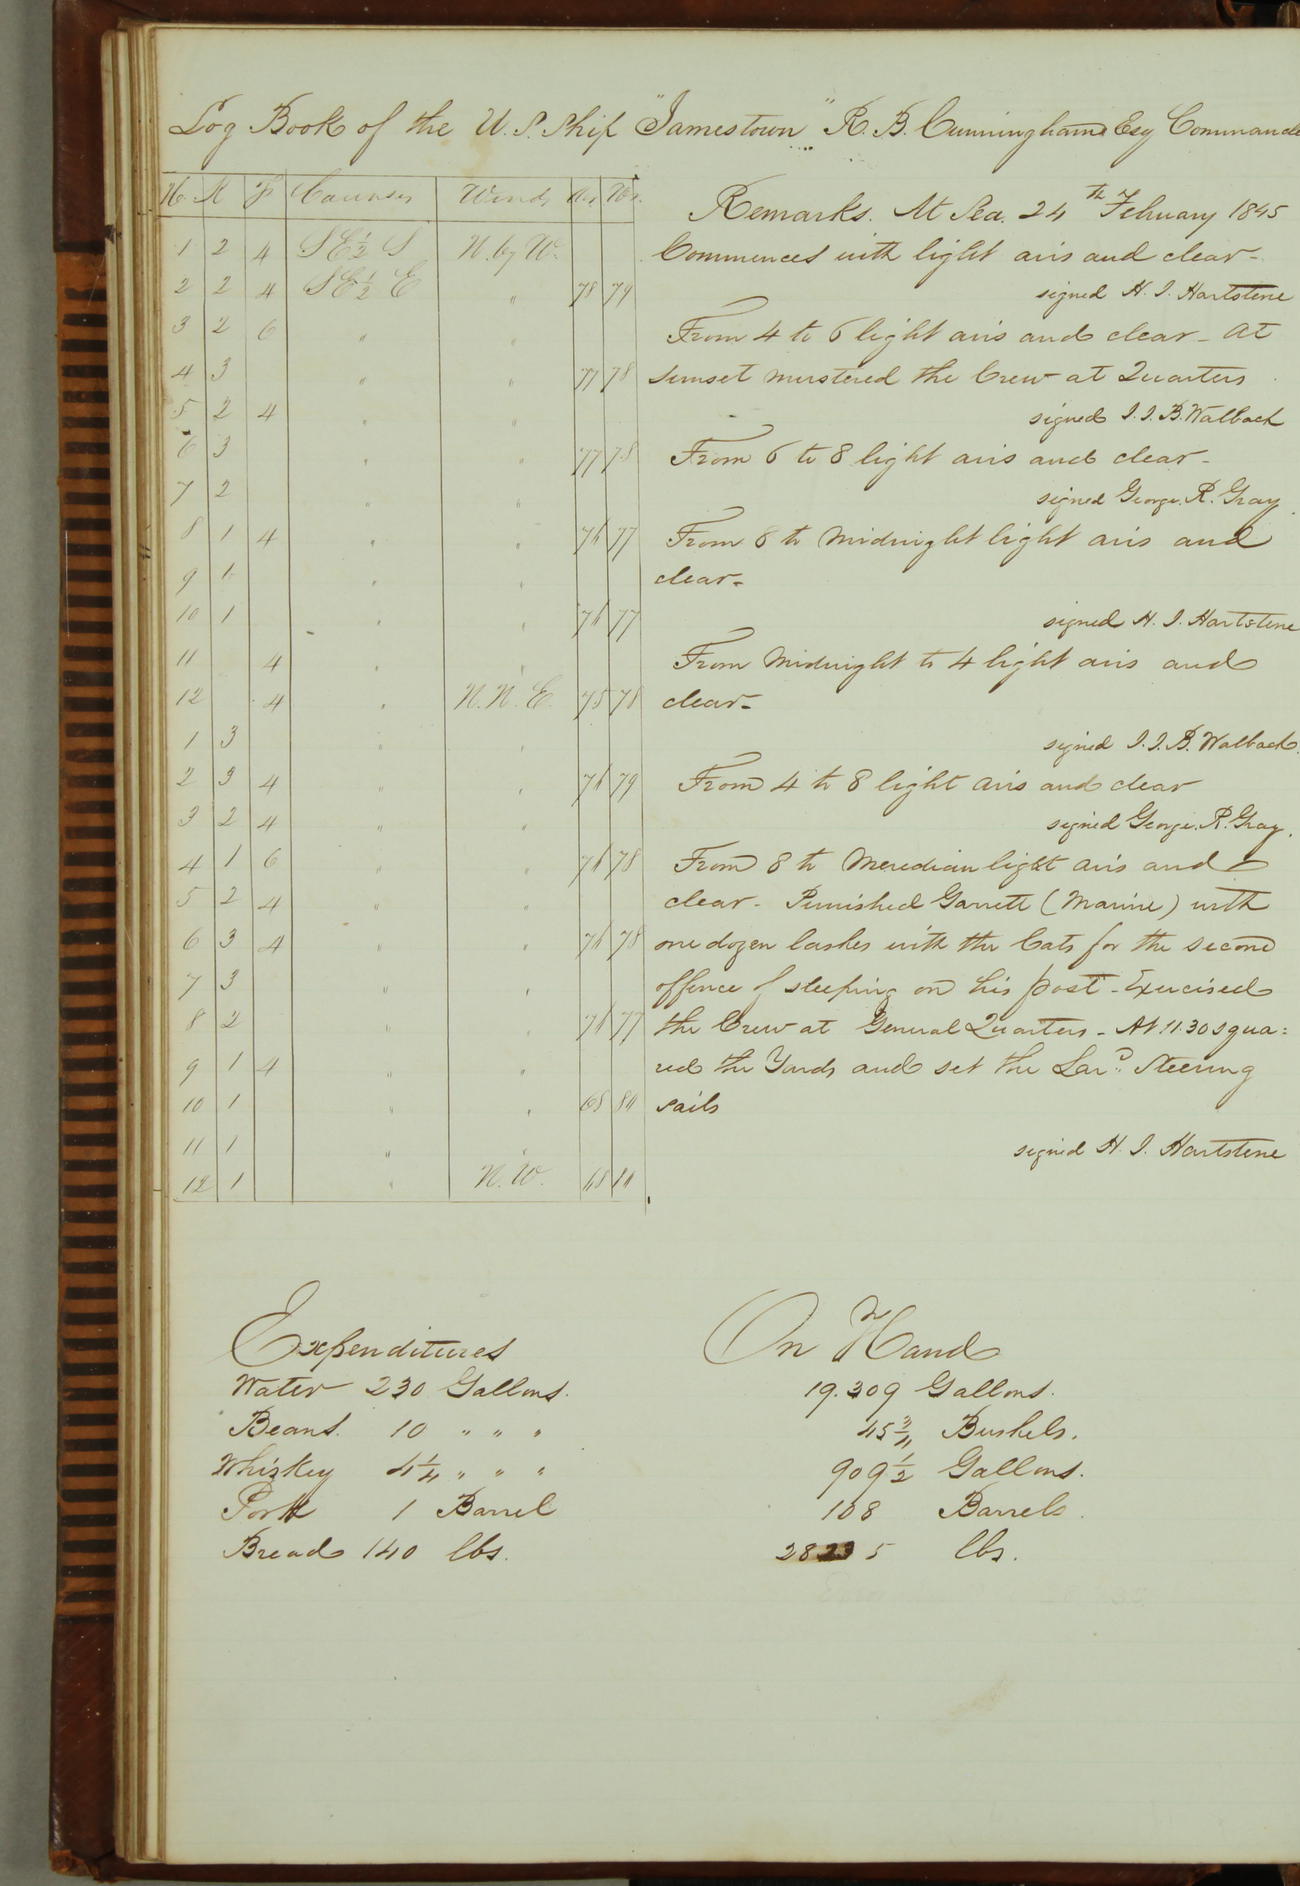 Log Book of the U.S. Ship "Jamestown" R. B. Cunningham Esq Commande
H K F Courses Winds Air Wr.
Remarks. At Sea. 24th February 1845
1 2 4 SE½ S N. by W.
Commences with light airs and clear-
2 2 4 SE½ E " 78 79
signed H. J. Hartstene
3 2 6 " "
From 4 to 6 light airs and clear - At
4 3 " " 77 78
sunset mustered the Crew at Quarters
5 2 4 " "
signed J. J. B. Walbach
6 3 " " 77 78
From 6 to 8 light airs and clear-
7 2 " "
signed George. R. Gray
8 1 4 " " 76 77
From 8 to Midnight light airs and
9 1 " "
clear-
10 1 " " 76 77
signed H. J. Hartstene
11 4 " "
From Midnight to 4 light airs and
12 4 " N. N. E. 75 78
clear-
1 3 " "
signed J. J. B. Walbach.
2 3 4 " " 76 79
From 4 to 8 light airs and clear
3 2 4 " "
signed George. R. Gray.
4 1 6 " " 76 78
From 8 to Meredian light airs and
5 2 4 " "
clear - Punished Garrett (Marine) with
6 3 4 " " 76 78
one dozen lashes with the Cats for the second
7 3 " "
offence of sleeping on his post - Exercised
8 2 " " 76 77
the Crew at General Quarters - At 11.30 squa=
9 1 4 " "
red the Yards and set the Lard. Steering
10 1 " " 68 80
sails
11 1 " "
signed H. J. Hartstene
12 1 " N. W. 68
Expenditures On Hand
Water 230 Gallons. 19.309 Gallons.
Beans. 10 " " " 45¾ Bushels.
Whiskey 4¼ " " " 909½ Gallons.
Pork 1 Barrel 108 Barrels.
Bread 140 lbs. 28235 lbs.